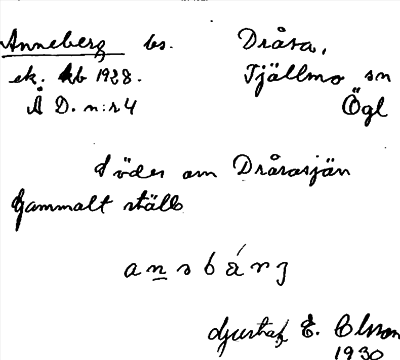 Anneberg bs. Dråsa,
ek. kb 1928. Tjällmo sn
Å D. n:r 4 Ögl
Söder om Dråsasjän
Gammalt ställe
ansbárj
Gustaf E. Olsson
1930